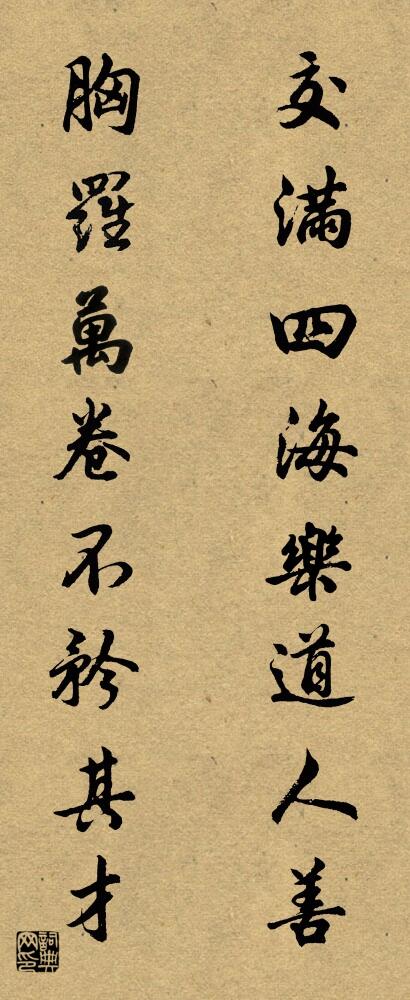 交滿四海樂道人善
胸羅萬卷不矜其才